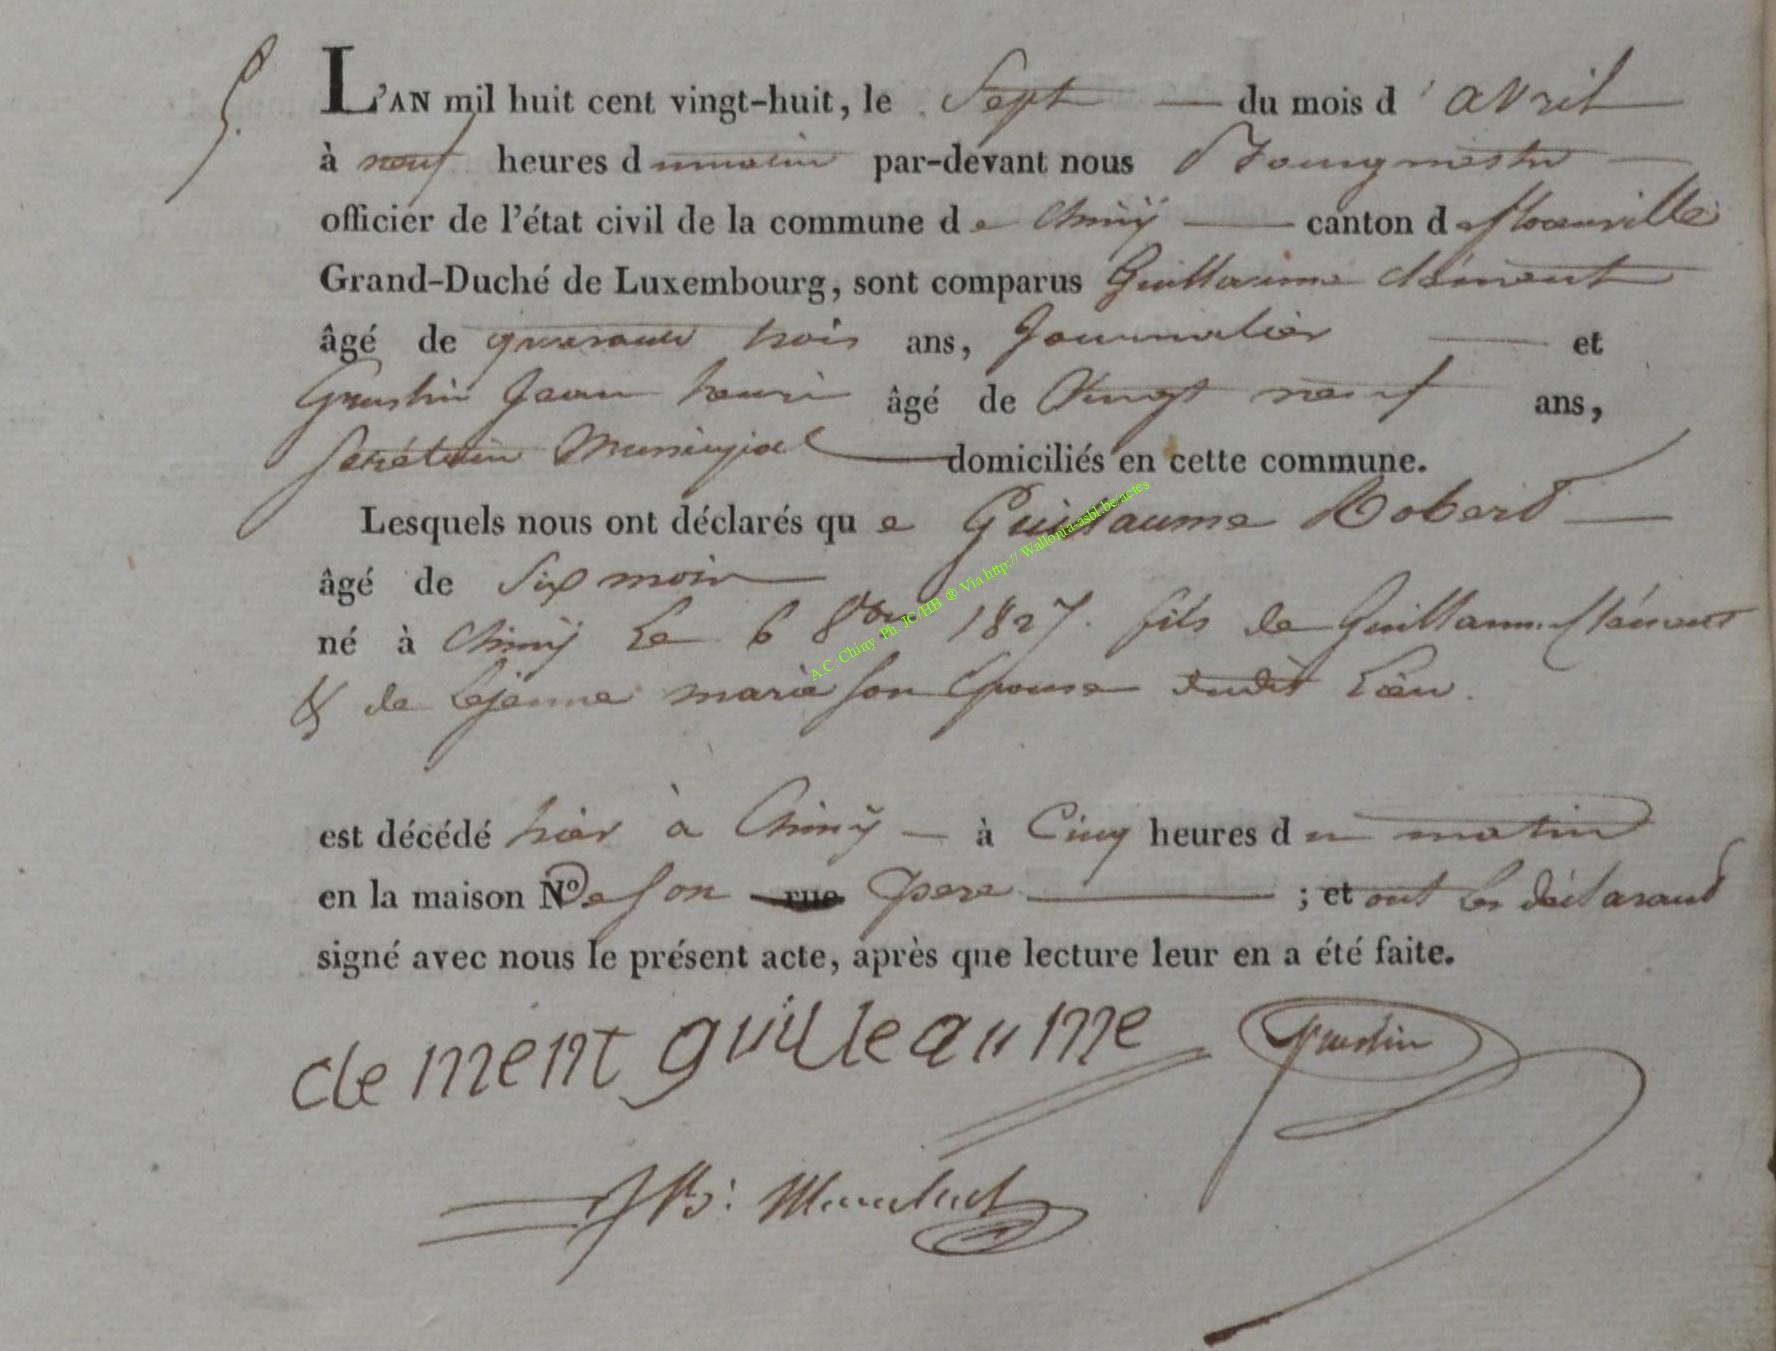 5.
L'AN mil huit cent vingt-huit, le Sept du mois d'avril
à neuf heures du matin par-devant nous Bourgmestre
officier de l'état civil de la commune de Chiny canton de florenville
Grand-Duché de Luxembourg, sont comparus Guillaume Clément
âgé de quarante trois ans, Journalier et
Jean henri âgé de Vingt neuf ans,
Secrétaire Municipal domiciliés en cette commune.
Lesquels nous ont déclarés que Guillaume Robert
âgé de Six mois
né à Chiny Le 6 8bre 1827. fils de Guillaume Clément
& de Lejeune marie son Epouse dudit Lieu.
est décédé hier à Chiny à Cinq heures du matin
en la maison No De son rue pere ; et ont les déclarans
signé avec nous le présent acte, après que lecture leur en a été faite.
clement guilleaume
A.C. Chiny Ph JC/HB ® Via http:// Wallonia-asbl.be/actes